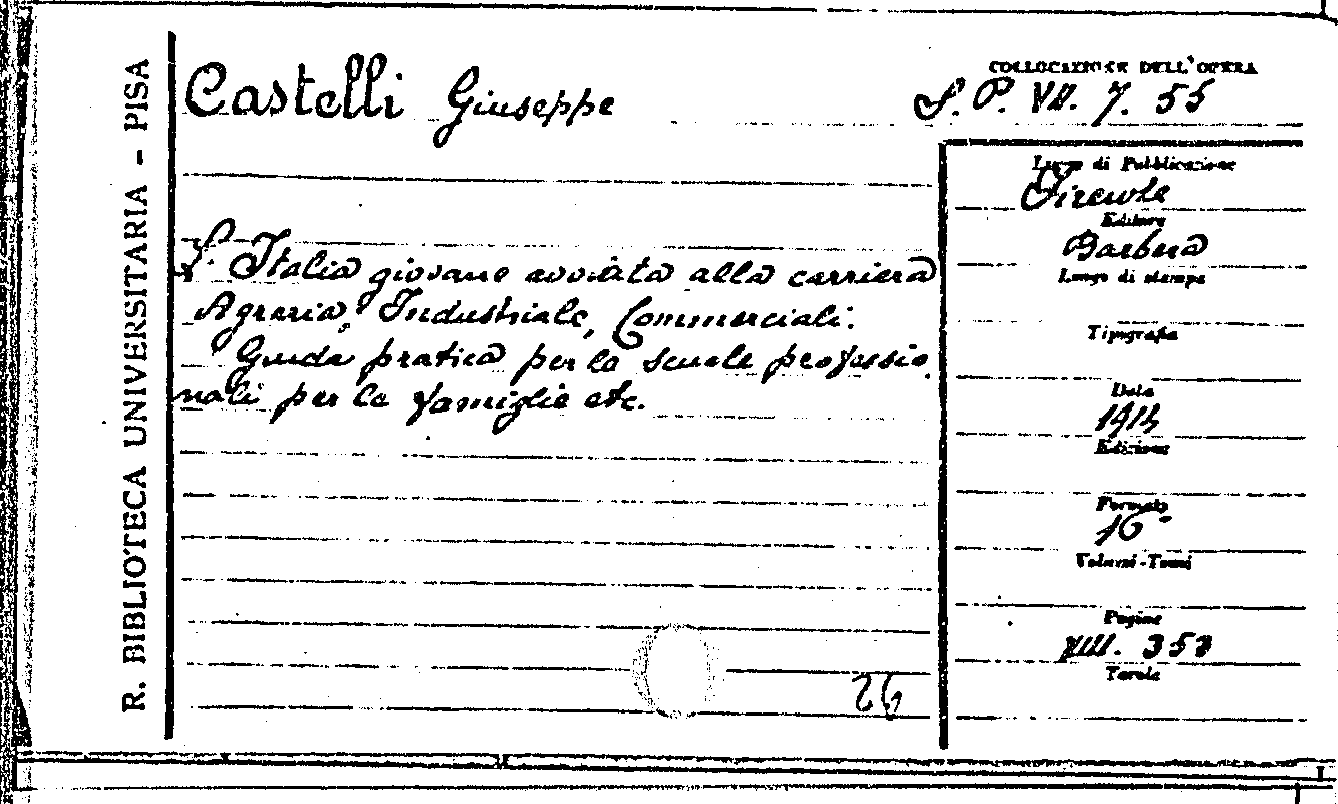 R. BIBLIOTECA UNIVERSITARIA - PISA
Castelli Giuseppe
L'Italia giovane avviata alla carriera
Agraria, Industriale, Commerciali.
Guida pratica per le scuole professio
nali per le famiglie etc.
26
COLLOCAZIONE DELL'OPERA
S. P. VII. 7. 55
Luogo di Pubblicazione
Firenze
Editore
Barbera
Luogo di stampa
Tipografia
Data
Edizione
Formato
16°
Volumi-Tomi
Pagine
XIII. 353
Tavole